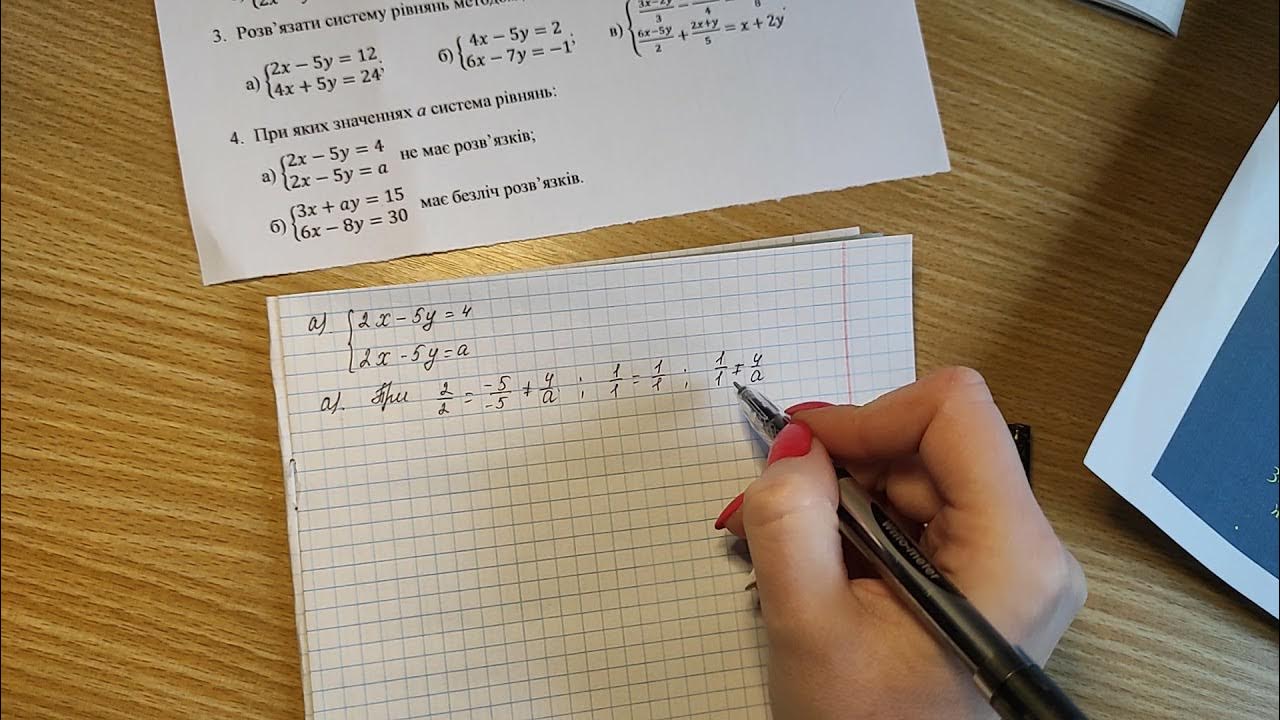 3. Розв’язати систему рівнянь
а) {2x − 5y = 12, 4x + 5y = 24; б) {4x − 5y = 2, 6x − 7y = −1; в) { (3x−2y)/3 − , (6x−5y)/2 + (2x+y)/5 = x + 2y
4. При яких значеннях a система рівнянь:
а) {2x − 5y = 4, 2x − 5y = a не має розв’язків;
б) {3x + ay = 15, 6x − 8y = 30 має безліч розв’язків.
а) {2x − 5y = 4
2x − 5y = a
а). При 2/2 = −5/−5 ≠ 4/a ; 1/1 = 1/1 ; 1/1 ≠ 4/a
Write-meter